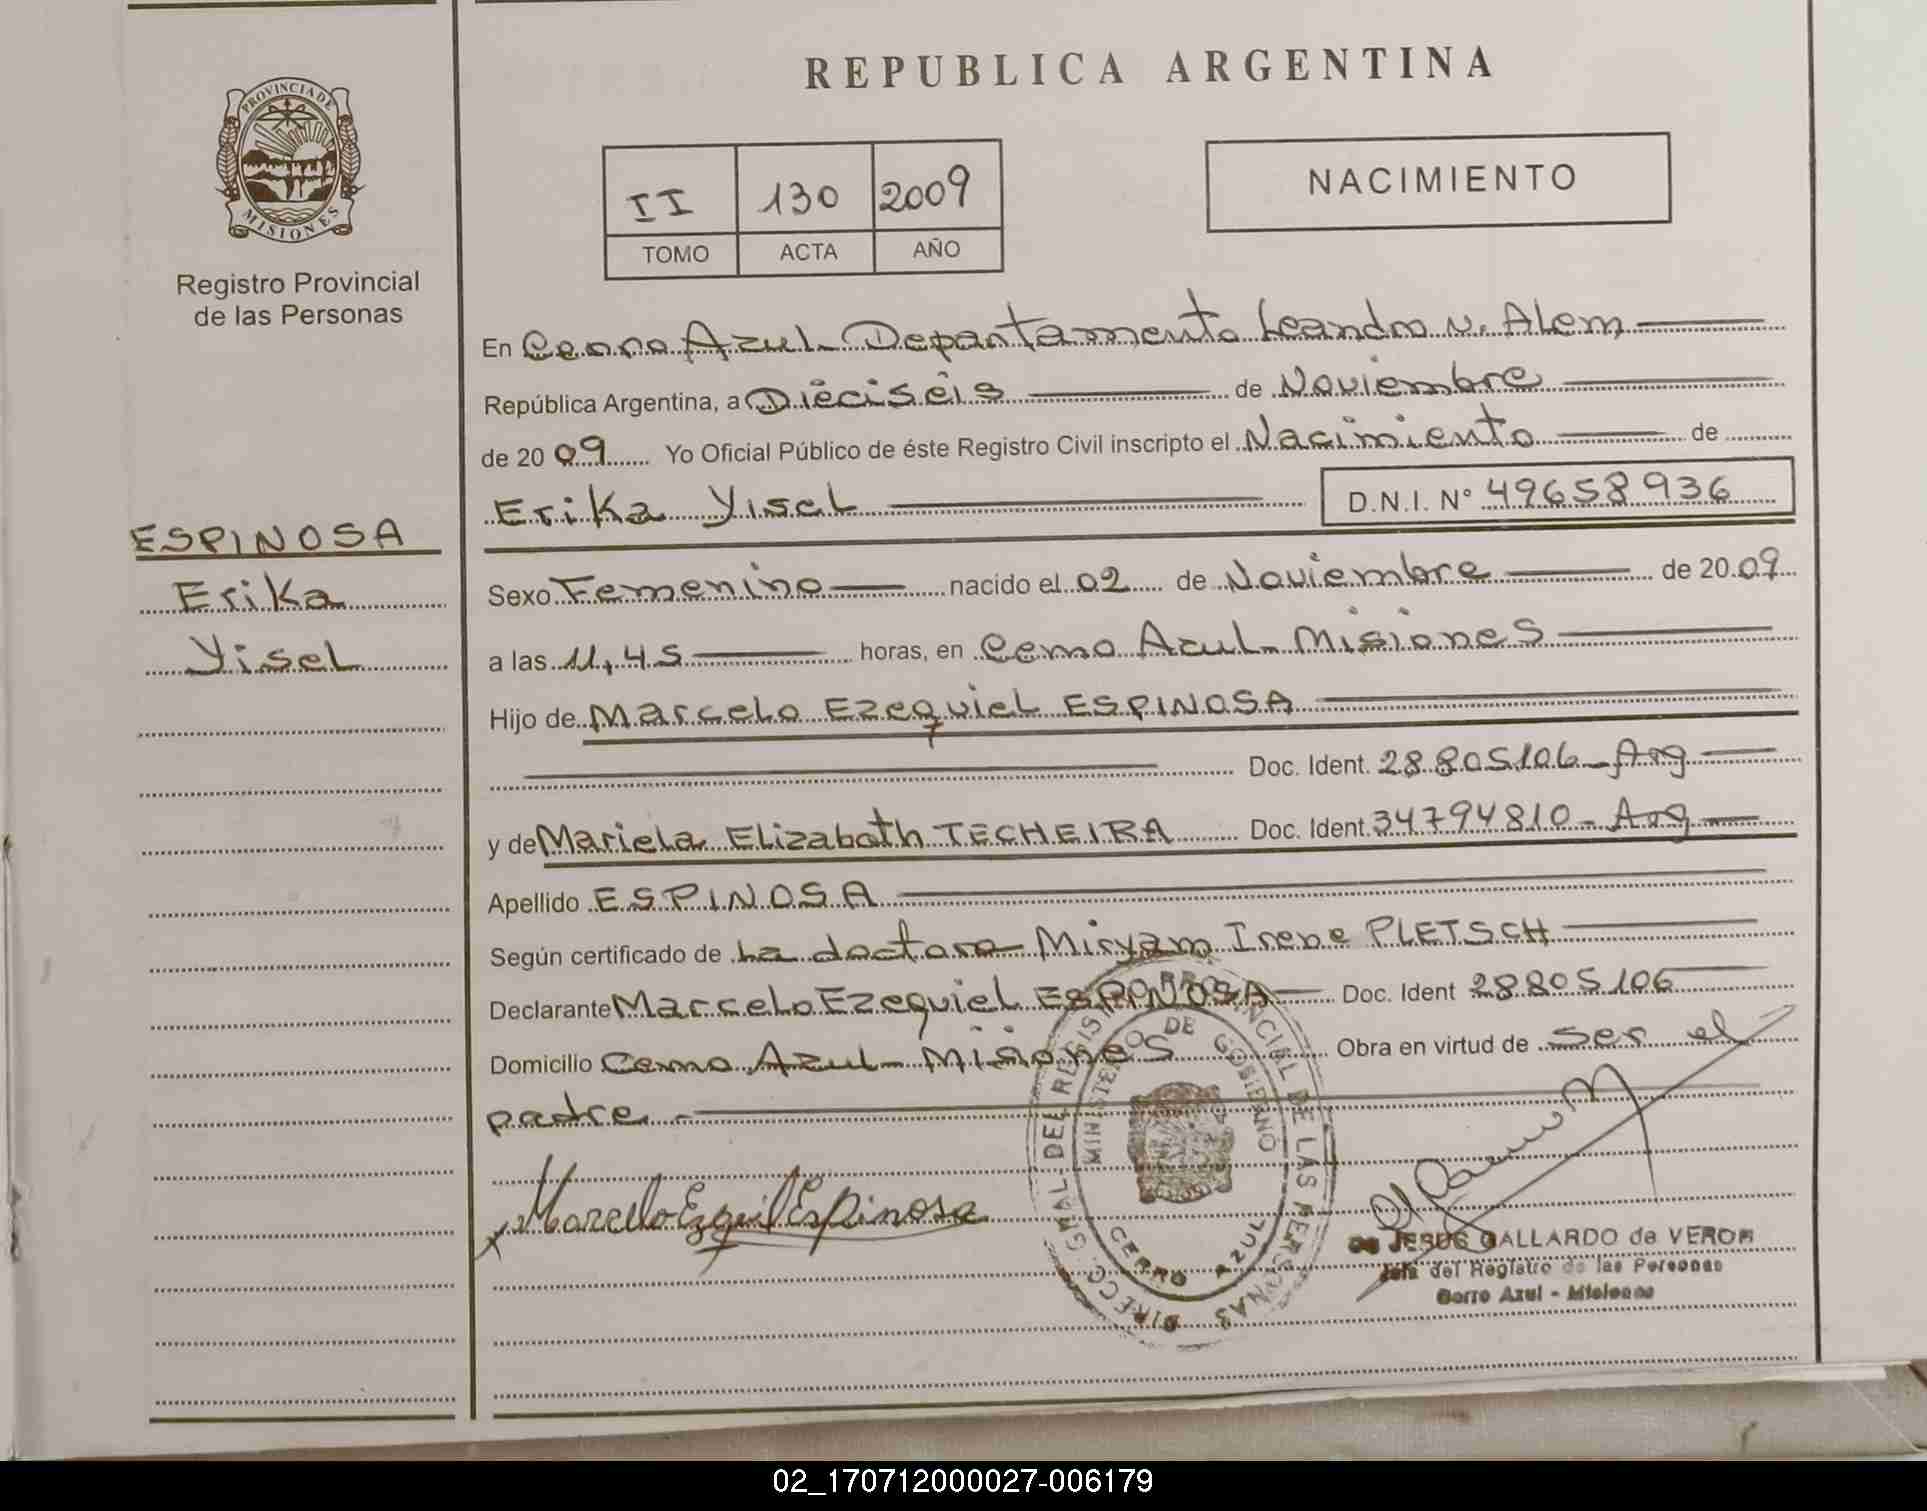 REPUBLICA ARGENTINA
PROVINCIA DE
MISIONES
Registro Provincial
de las Personas
II 130 2009
TOMO ACTA AÑO
NACIMIENTO
En Cerro Azul - Departamento Leandro N. Alem
República Argentina, a Dieciséis de Noviembre
de 20 09 Yo Oficial Público de éste Registro Civil inscripto el Nacimiento de
Erika Yisel D.N.I. N° 49658936
ESPINOSA
Erika
Yisel
Sexo Femenino nacido el 02 de Noviembre de 20 09
a las 11,45 horas, en Cerro Azul - Misiones
Hijo de Marcelo Ezequiel ESPINOSA
Doc. Ident. 28805106 - Arg
y de Mariela Elizabeth TECHEIRA Doc. Ident. 34794810 - Arg
Apellido ESPINOSA
Según certificado de La doctora Miryam Irene PLETSCH
Declarante Marcelo Ezequiel ESPINOSA Doc. Ident 28805106
Domicilio Cerro Azul - Misiones Obra en virtud de ser el
padre.-
Marcelo Ezquil Espinosa
DIRECC. GRAL. DEL REGISTRO PROVINCIAL DE LAS PERSONAS
MINISTERIO DE GOBIERNO
CERRO AZUL
JESUS GALLARDO de VERON
Jefa del Registro de las Personas
Cerro Azul - Misiones
02_170712000027-006179